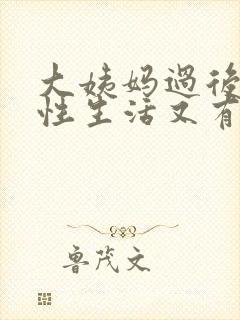 大姨妈过後
性生活又有
鲁茂文